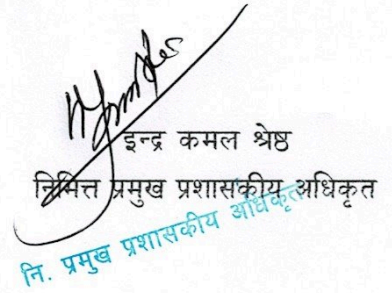 इन्द्र कमल श्रेष्ठ
निमित्त प्रमुख प्रशासकीय अधिकृत
नि. प्रमुख प्रशासकीय अधिकृत